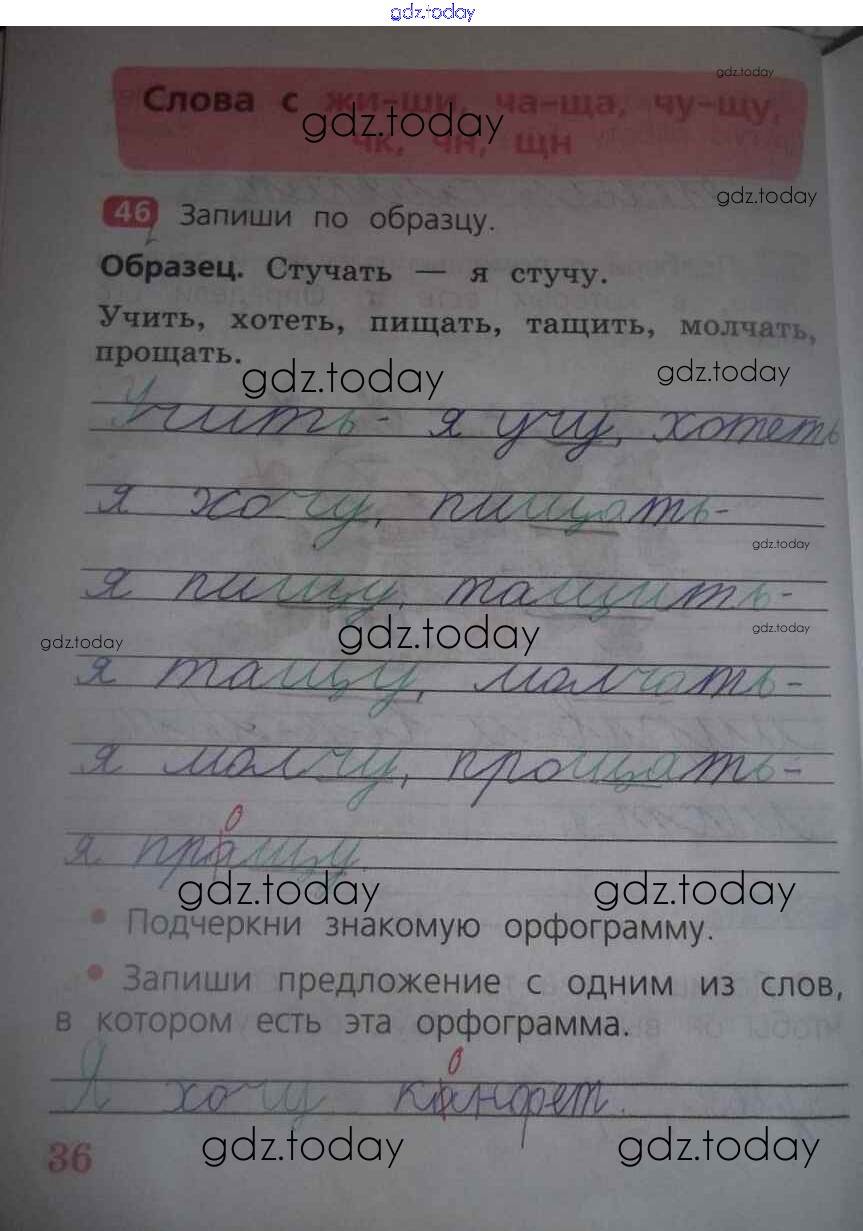 gdz.today
gdz.today
Слова с жи-ши, ча-ща, чу-щу,
gdz.today
чк, чн, щн
gdz.today
46 Запиши по образцу.
Образец. Стучать — я стучу.
Учить, хотеть, пищать, тащить, молчать,
прощать.
gdz.today gdz.today
Учить- я учу, хотеть
я хочу, пищать-
gdz.today
я пищу, тащить-
gdz.today gdz.today gdz.today
я тащу, молчать-
я молчу, прощать-
о
я пращу
gdz.today gdz.today
Подчеркни знакомую орфограмму.
Запиши предложение с одним из слов,
в котором есть эта орфограмма.
о
Я хочу канфет.
36 gdz.today gdz.today